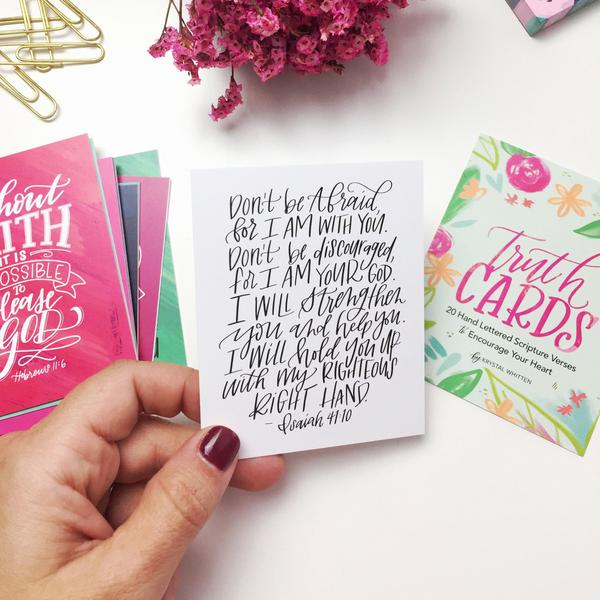 hout
ITH
IT IS
POSSIBLE
TO
lease
GOD
Hebrews 11:6
Don't be Afraid,
for I AM WITH YOU.
Don't be discouraged,
for I AM YOUR GOD.
I WILL Strengthen
you and help you.
I WILL hold you UP
with my RIGHTEOUS
RIGHT HAND.
- Isaiah 41:10
Truth
CARDS
20 Hand Lettered Scripture Verses
to Encourage Your Heart
by KRYSTAL WHITTEN